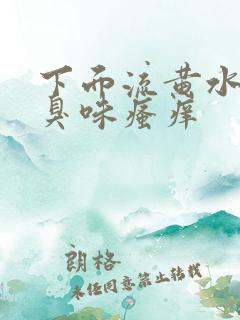 下面流黄水
臭味瘙痒
朗格
未经同意禁止转载